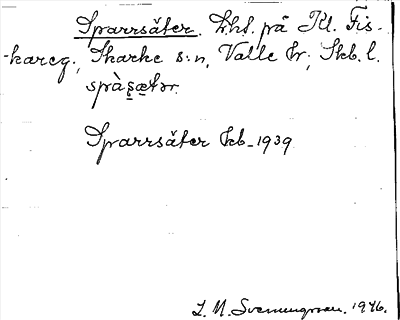 Sparrsäter. Lht. på Kl. Fis-
kareg., Skarke s:n, Valle hr, Skb. l.
spàṣætər.
Sparrsäter kb_1939
L. M. Svenungsson. 1946.